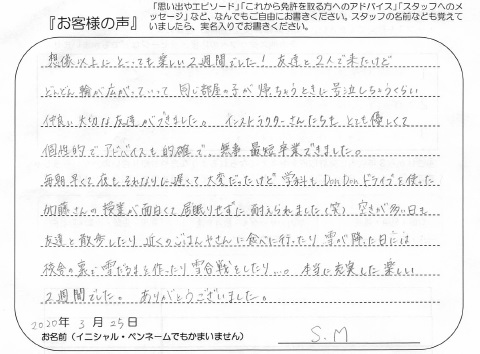 『お客様の声』
「思い出やエピソード」「これから免許を取る方へのアドバイス」「スタッフへのメ
ッセージ」など、なんでもご自由にお書きください。スタッフの名前なども覚えて
いましたら、実名入りでお書きください。
想像以上にと…っても楽しい2週間でした！友達と2人で来たけど
どんどん輪が広がっていって 同じ部屋の子が帰ちゃうときに号泣しちゃうくらい
仲良い大切な友達ができました。インストラクターさんたちも とても優しくて
個性的で アドバイスも的確で、無事 最短卒業できました。
毎朝早くて夜もそれなりに遅くて大変だったけど 学科も Don Don ドライブを使った
加藤さんの授業が面白くて居眠りせずに耐えられました（笑）空きが多い日も
友達と散歩したり 近くのごはんやさんに食べに行ったり 雪が降った日には
校舎の裏で雪だるまを作ったり 雪合戦をしたり…。本当に充実した楽しい
2週間でした。ありがとうございました。
2020年 3月 25日
お名前（イニシャル・ペンネームでもかまいません） S.M